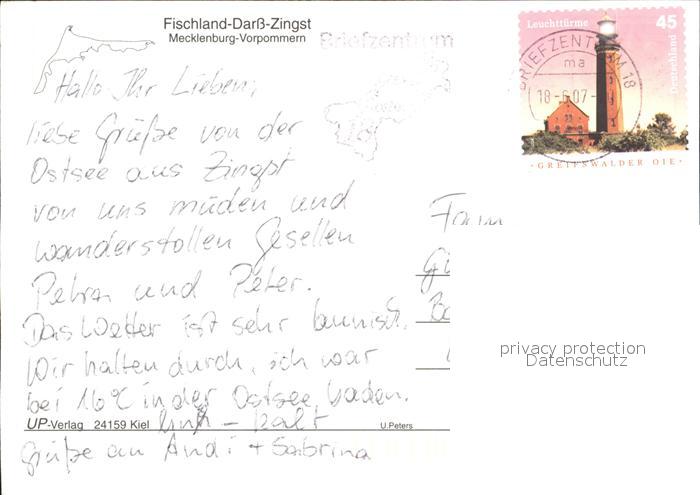 Fischland-Darß-Zingst
Mecklenburg-Vorpommern
Briefzentrum
Leuchttürme 45
Deutschland
BRIEFZENTRUM 18
ma
18-6.07-
· GREIFSWALDER OIE ·
Hallo Ihr Lieben,
liebe Grüße von der
Ostsee aus Zingst
von uns müden und
wanderstollen Gesellen
Petra und Peter.
Das Wetter ist sehr launisch.
Wir halten durch, ich war
bei 16°C in der Ostsee baden.
UP-Verlag 24159 Kiel
U.Peters
– kalt
Grüße an Andi + Sabrina
Fam
privacy protection
Datenschutz